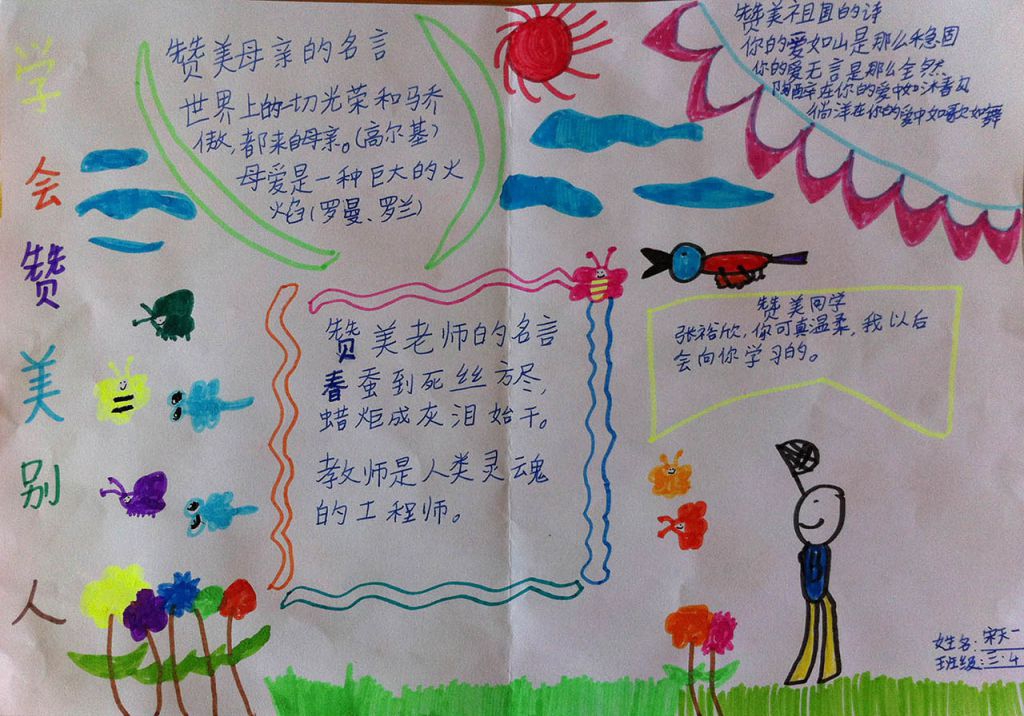 学会赞美别人
赞美母亲的名言
世界上的一切光荣和骄
傲，都来自母亲。(高尔基)
母爱是一种巨大的火
焰(罗曼、罗兰)
赞美祖国的诗
你的爱如山是那么稳固
你的爱无言是那么全然
陶醉在你的爱中如沐春风
倘洋在你的爱中如歌如舞
赞美老师的名言
春蚕到死丝方尽，
蜡炬成灰泪始干。
教师是人类灵魂
的工程师。
赞美同学
张裕欣，你可真温柔，我以后
会向你学习的。
姓名：宋天一
班级：三·4